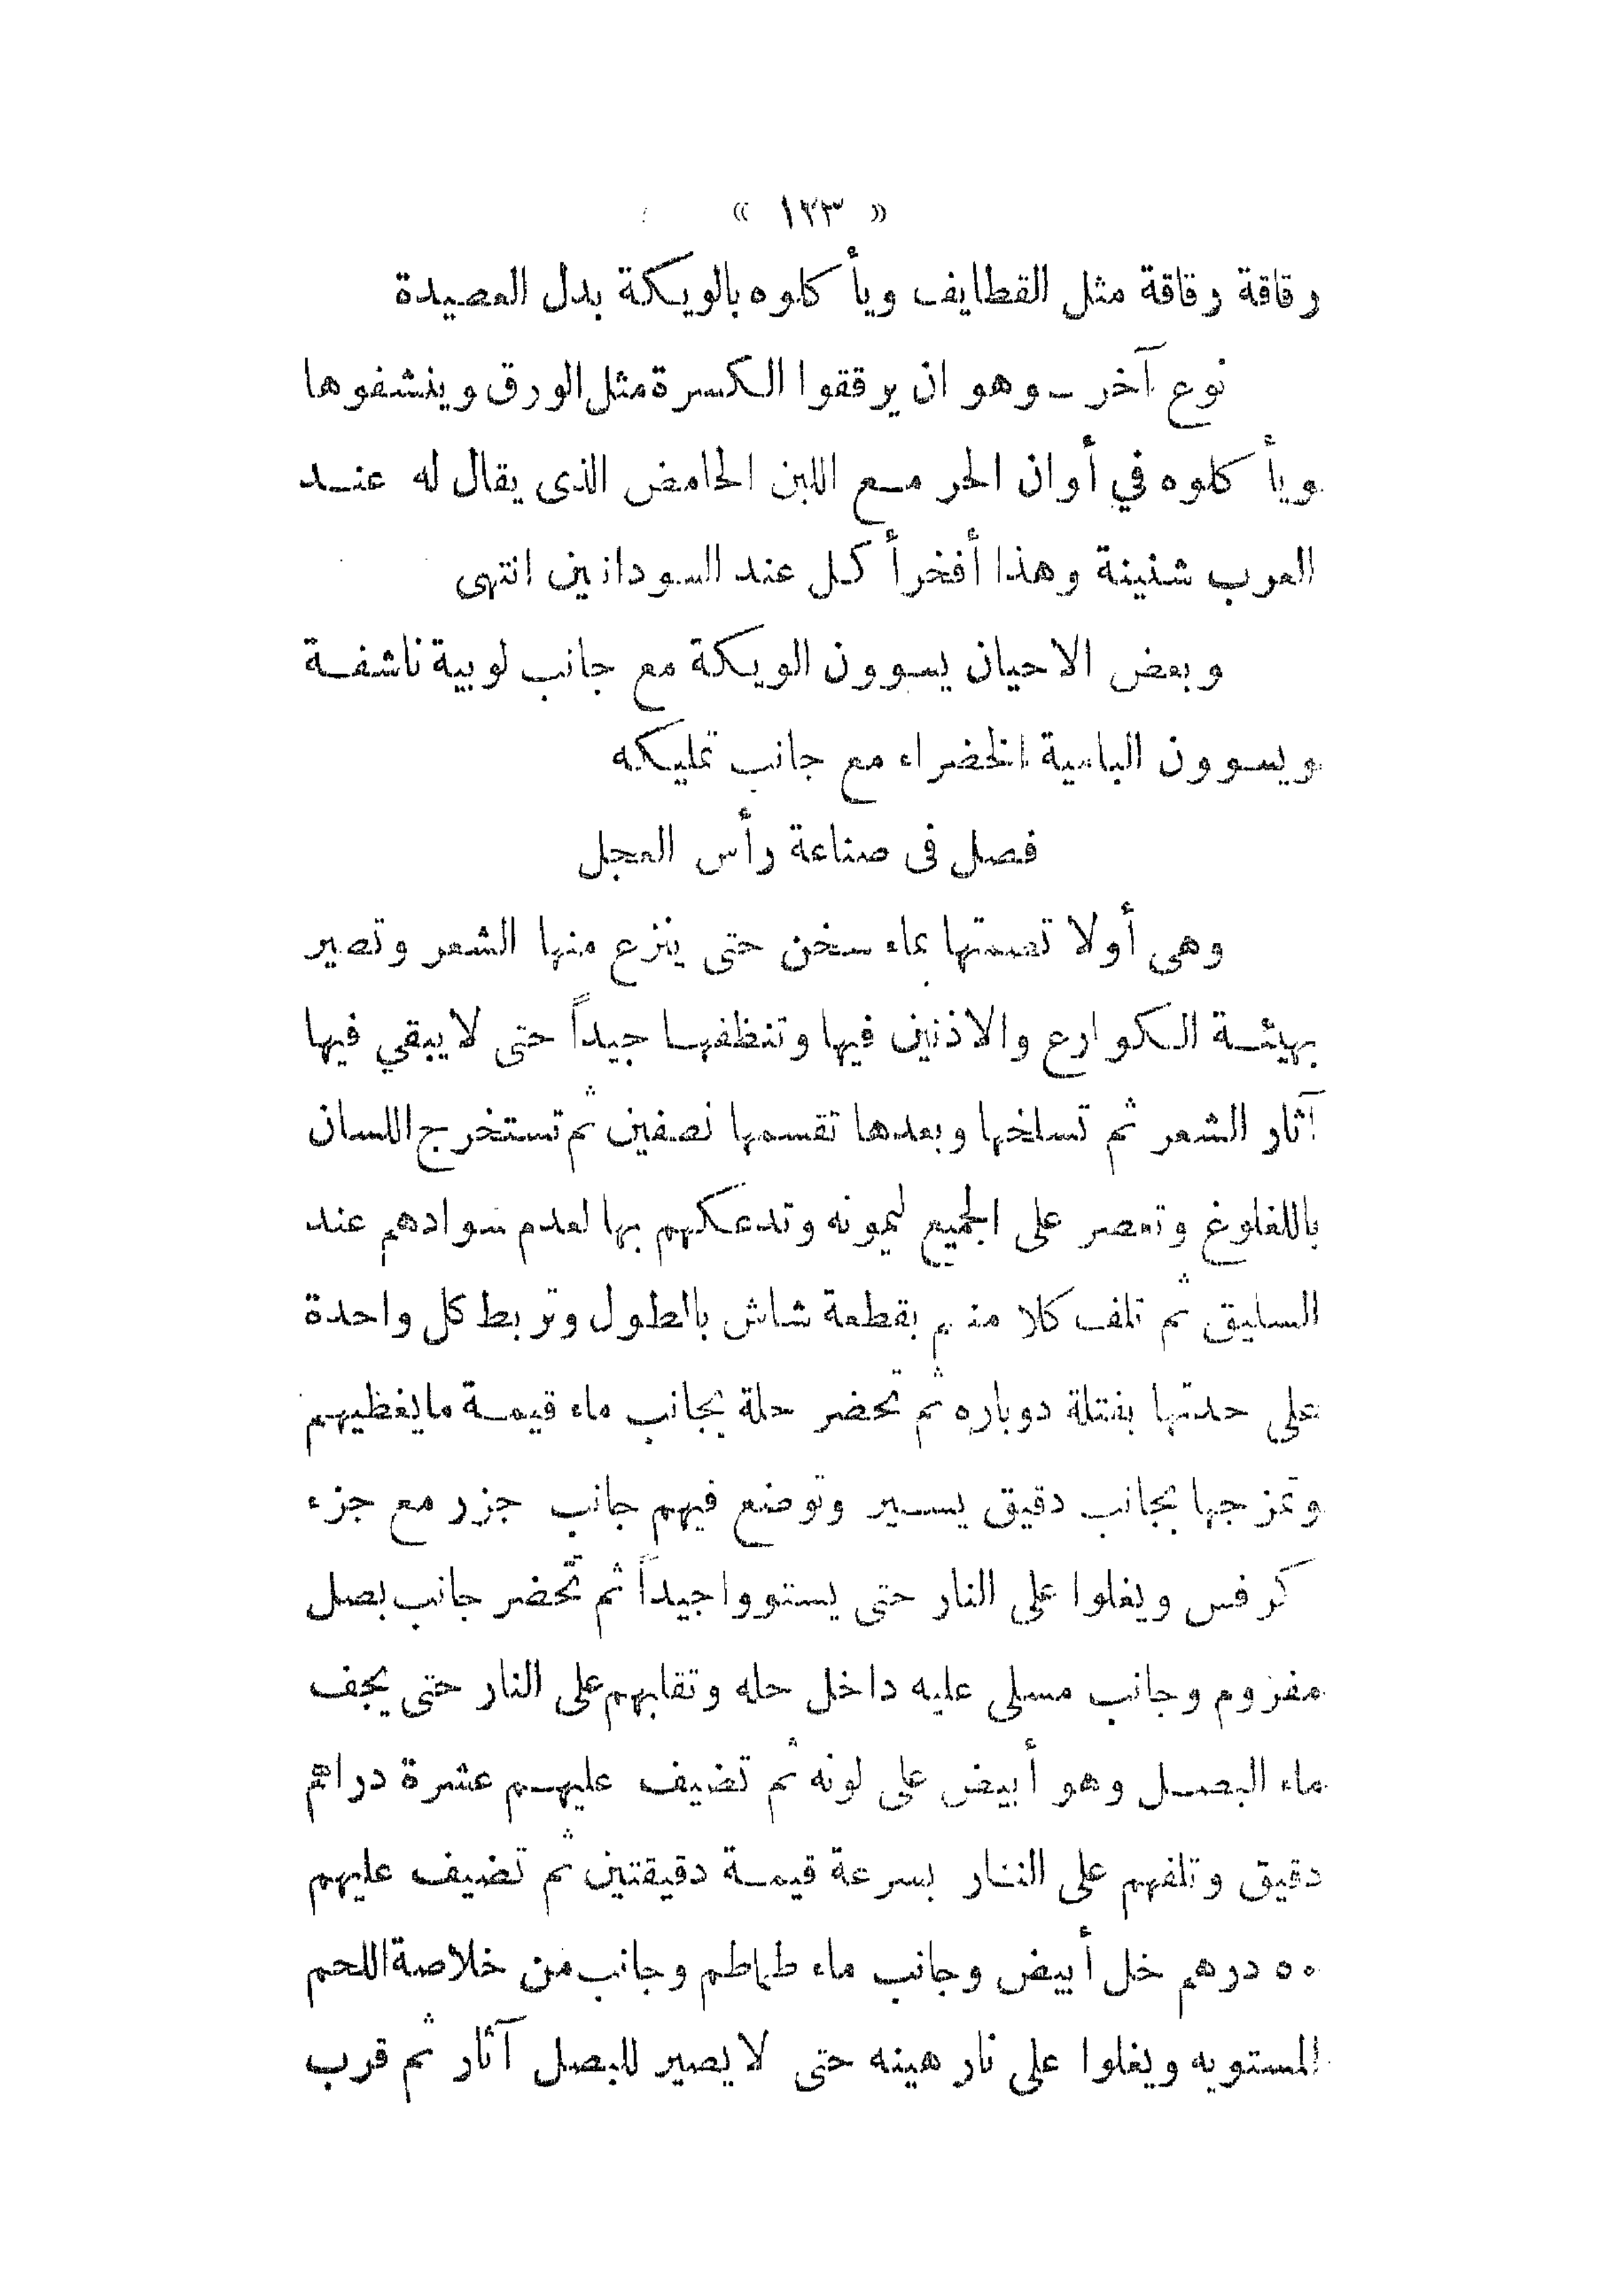 « ١٢٣ »
رقاقة رقاقة مثل القطايف ويأكلوه بالويكة بدل العصيدة
نوع آخر ـ وهو ان يرققوا الكسرة مثل الورق وينشفوها
ويأكلوه في أوان الحر مع اللبن الحامض الذى يقال له عند
العرب شنينة وهذا أفخر أكل عند السودانين انتهى
وبعض الاحيان يسوون الويكة مع جانب لوبية ناشفة
ويسوون البامية الخضراء مع جانب تمليكه
فصل فى صناعة رأس العجل
وهى أولا تصمتها بماء سخن حتى ينزع منها الشعر وتصير
بهيئة الكوارع والاذنين فيها وتنظفها جيداً حتى لا يبقي فيها
آثار الشعر ثم تسلخها وبعدها تقسمها نصفين ثم تستخرج اللسان
باللغلوغ وتعصر على الجميع ليمونه وتدعكهم بها لعدم سوادهم عند
السليق ثم تلف كلا منهم بقطعة شاش بالطول وتربط كل واحدة
على حدتها بفتلة دوباره ثم تحضر حلة بجانب ماء قيمة ما يغظيهم
وتمزجها بجانب دقيق يسير وتوضع فيهم جانب جزر مع جزء
كرفس ويغلوا على النار حتى يستووا جيداً ثم تحضر جانب بصل
مفروم وجانب مسلى عليه داخل حله وتقلبهم على النار حتى يجف
ماء البصل وهو أبيض على لونه ثم تضيف عليهم عشرة دراهم
دقيق وتلفهم على النار بسرعة قيمة دقيقتين ثم تضيف عليهم
٥٠ درهم خل أبيض وجانب ماء طماطم وجانب من خلاصة اللحم
المستويه ويغلوا على نار هينه حتى لا يصير للبصل آثار ثم قرب